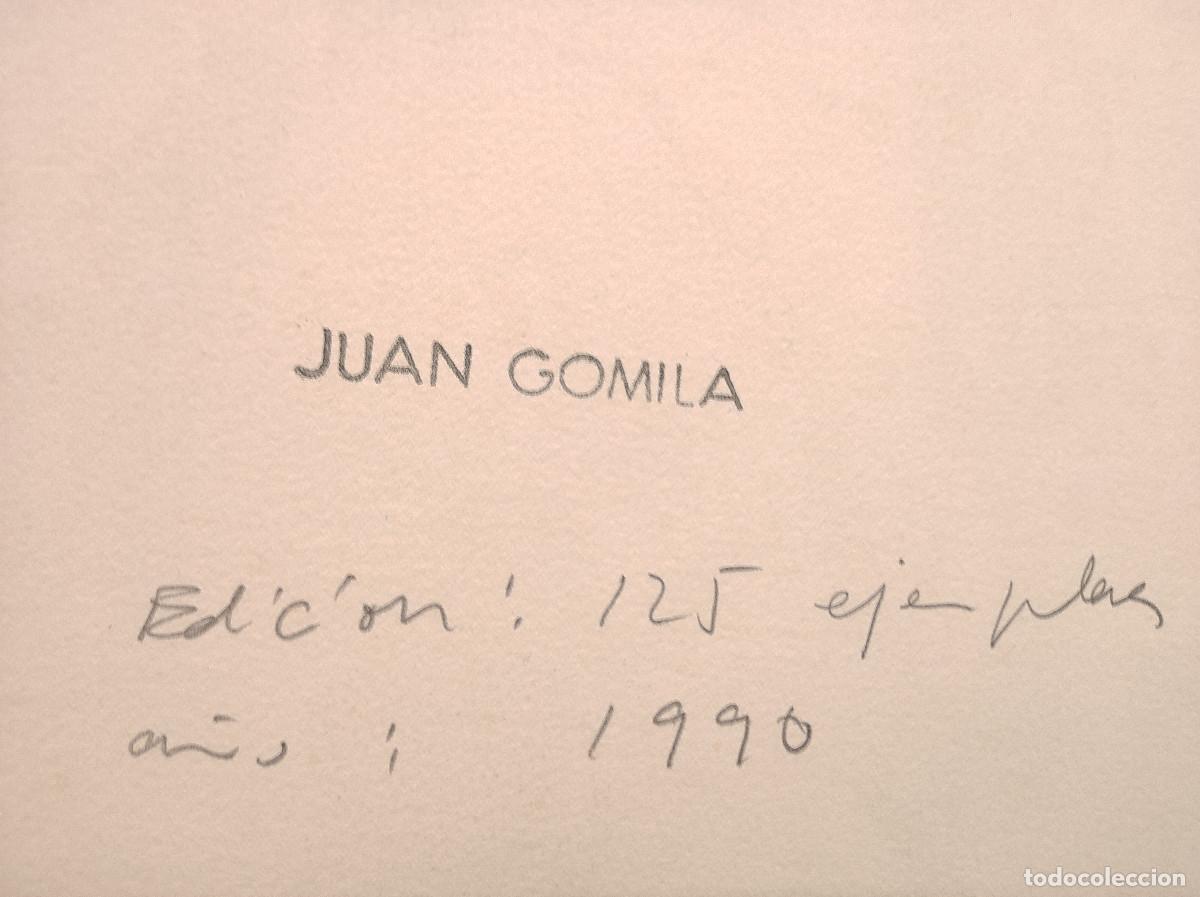 JUAN GOMILA
Edición: 125 ejemplares
año: 1990
todocoleccion